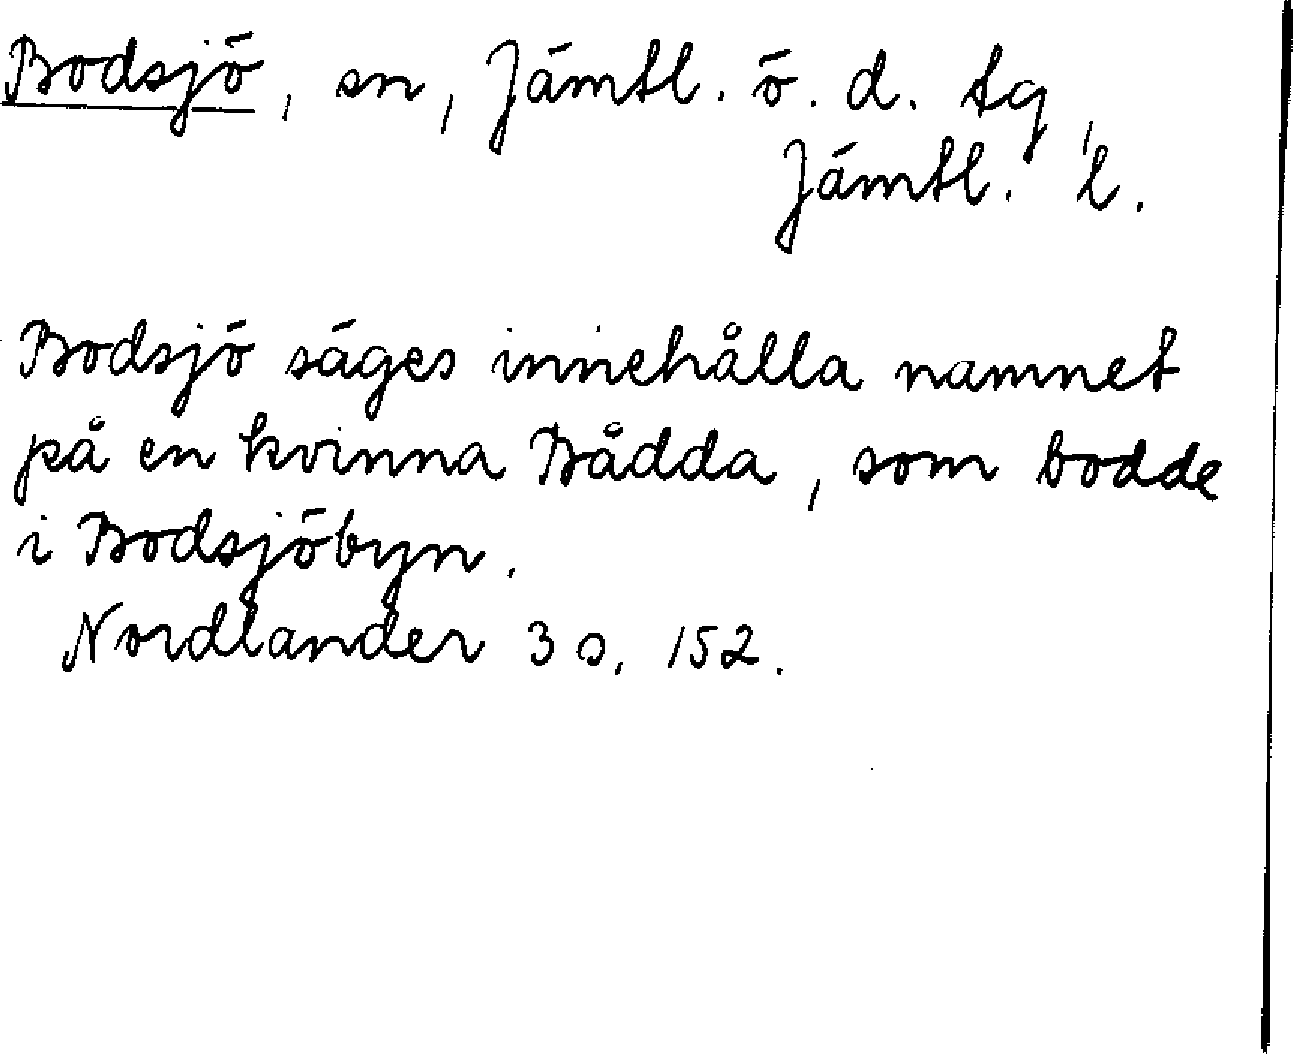 Bodsjö, sn, Jämtl. ö. d. tg,
Jämtl. l.
Bodsjö säges innehålla namnet
på en kvinna Bådda, som bodde
i Bodsjöbyn.
Nordlander 3 s. 152.